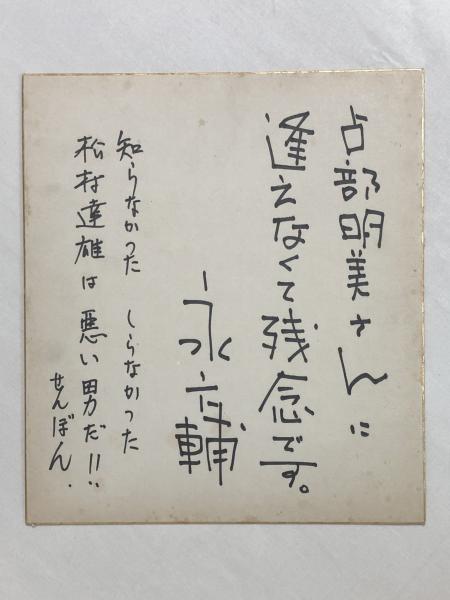 占部明美さんに
逢えなくて残念です。
永六輔
知らなかった しらなかった
松村達雄は悪い男だ!!
せんぼん.